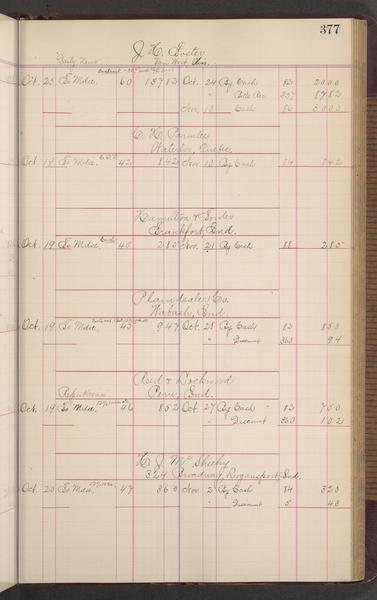 377
J. H. Foster
"Daily News" Van Wert, Ohio.
Oct. 23 To Mdse. 60 157 82 Oct. 24 By Cash 82 20 00
" Bills Rec 357 87 82
Nov. 10 " Cash 86 50 00
C. H. Parmelee
Waterloo, Quebec
Oct. 19 To Mdse. C.O.D. 42 8 42 Nov. 10 By Cash 84 8 42
Hamilton &
Frankfort, Ind.
Oct. 19 To Mdse. 45 2 85 Nov. 21 By Cash 88 2 85
Plaindealer Co.
Wabash, Ind.
Oct. 19 To Mdse. 45 9 47 Oct. 28 By Cash 83 8 53
" Discount 360 94
Reed & Lockwood
"Republican" Peru, Ind.
Oct. 19 To Mdse. 46 8 52 Oct. 27 By Cash 83 7 50
" Discount 360 1 02
H. J. McSheehy
324 Broadway, Logansport, Ind.
Oct. 20 To Mdse. 47 3 63 Nov. 2 By Cash 84 3 20
" Discount 5 43